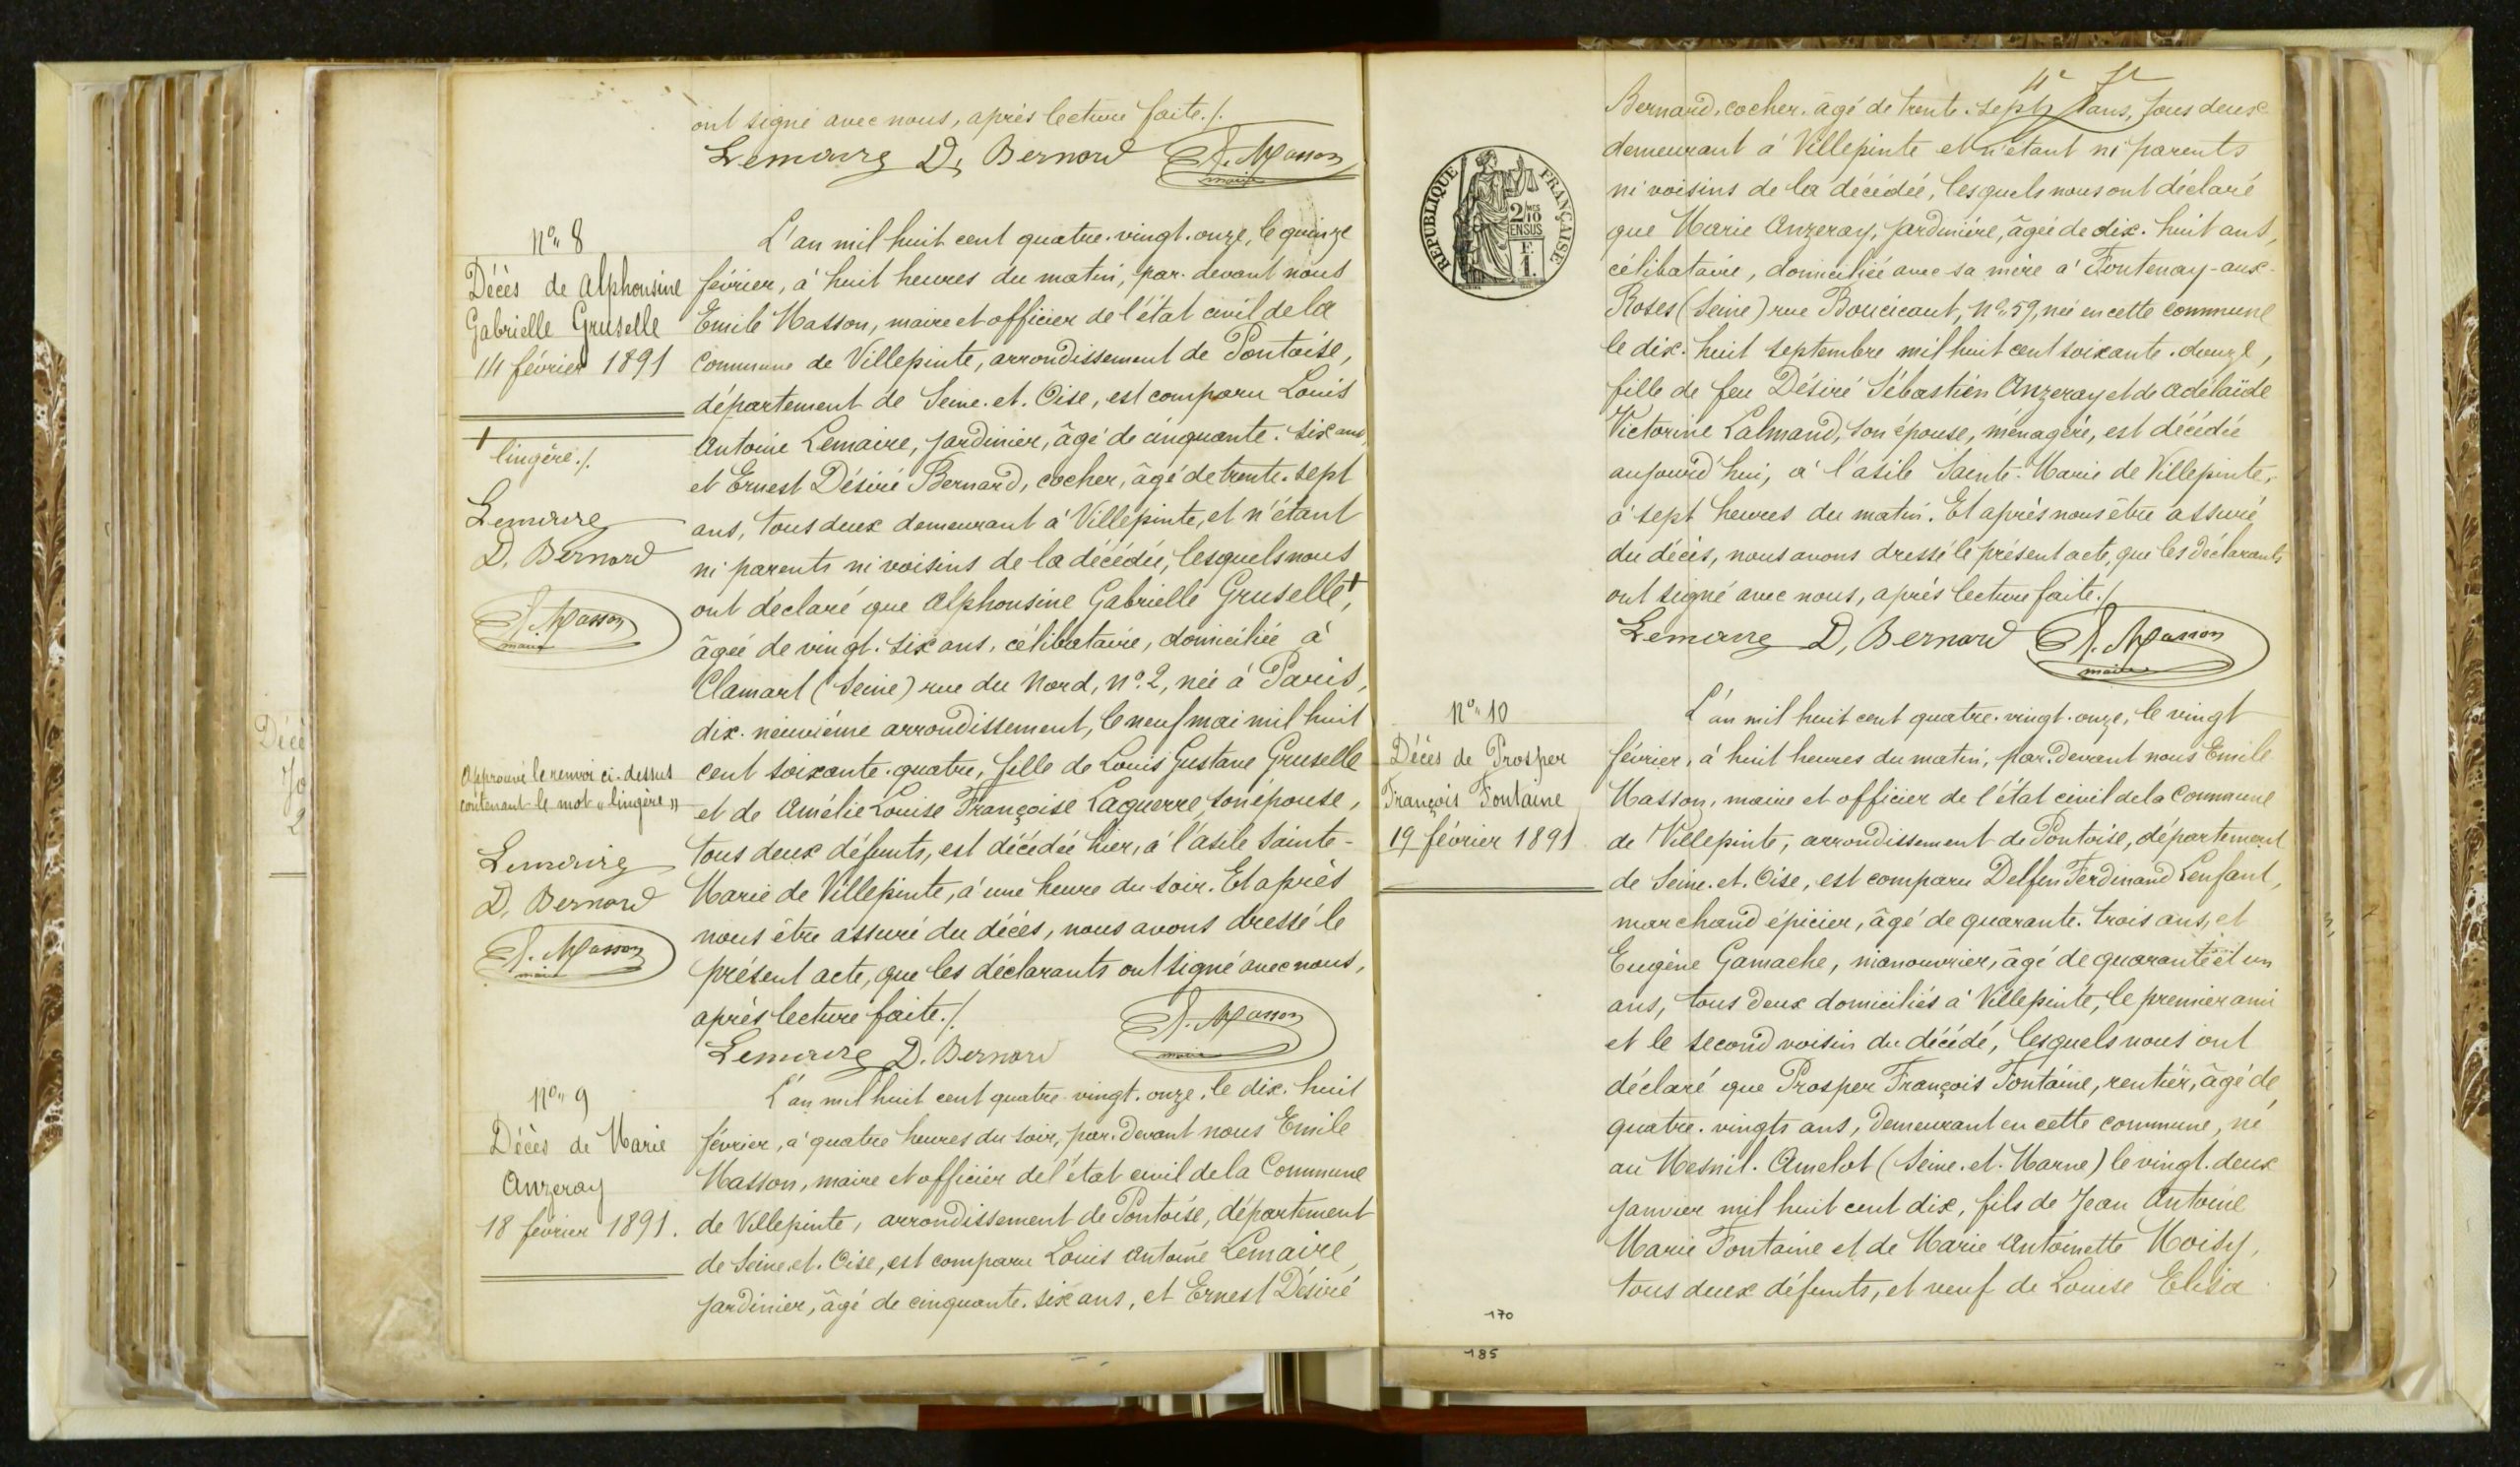 ont signé avec nous, après lecture faite./.
Lemaire D. Bernard E. Masson
maire
N° 8
Décès de Alphonsine
Gabrielle Gruselle
14 février 1891
L'an mil huit cent quatre-vingt-onze, le quinze
février, à huit heures du matin, par-devant nous
Emile Masson, maire et officier de l'état civil de la
Commune de Villepinte, arrondissement de Pontoise,
département de Seine-et-Oise, est comparu Louis
Antoine Lemaire, jardinier, âgé de cinquante-six ans,
et Ernest Désiré Bernard, cocher, âgé de trente-sept
ans, tous deux demeurant à Villepinte, et n'étant
ni parents ni voisins de la décédée, lesquels nous
ont déclaré que Alphonsine Gabrielle Gruselle +,
âgée de vingt-six ans, célibataire, domiciliée à
Clamart (Seine) rue du Nord, n° 2, née à Paris,
dix-neuvième arrondissement, le neuf mai mil huit
cent soixante-quatre, fille de Louis Gustave Gruselle
et de Amélie Louise Françoise Laguerre, son épouse,
tous deux défunts, est décédée hier, à l'asile Sainte-
Marie de Villepinte, à une heure du soir. Et après
nous être assuré du décès, nous avons dressé le
présent acte, que les déclarants ont signé avec nous,
après lecture faite./.
Lemaire D. Bernard E. Masson
maire
+ lingère./.
Lemaire
D. Bernard
E. Masson
maire
Approuvé le renvoi ci-dessus
contenant le mot "lingère"
Lemaire
D. Bernard
E. Masson
maire
N° 9
Décès de Marie
Anzeray
18 février 1891.
L'an mil huit cent quatre-vingt-onze, le dix-huit
février, à quatre heures du soir, par-devant nous Emile
Masson, maire et officier de l'état civil de la Commune
de Villepinte, arrondissement de Pontoise, département
de Seine-et-Oise, est comparu Louis Antoine Lemaire,
jardinier, âgé de cinquante-six ans, et Ernest Désiré
Bernard, cocher, âgé de trente-sept ans, tous deux
demeurant à Villepinte et n'étant ni parents
ni voisins de la décédée, lesquels nous ont déclaré
que Marie Anzeray, jardinière, âgée de dix-huit ans,
célibataire, domiciliée avec sa mère à Fontenay-aux-
Roses (Seine) rue Boucicaut, n° 59, née en cette commune
le dix-huit septembre mil huit cent soixante-douze,
fille de feu Désiré Sébastien Anzeray et de Adélaïde
Victorine Lalmand, son épouse, ménagère, est décédée
aujourd'hui, à l'asile Sainte-Marie de Villepinte,
à sept heures du matin. Et après nous être assuré
du décès, nous avons dressé le présent acte, que les déclarants
ont signé avec nous, après lecture faite./
Lemaire D. Bernard E. Masson
maire
RÉPUBLIQUE FRANÇAISE
2/10 MES
EN SUS
F.
1.
N° 10
Décès de Prosper
François Fontaine
19 février 1891
L'an mil huit cent quatre-vingt-onze, le vingt
février, à huit heures du matin, par-devant nous Emile
Masson, maire et officier de l'état civil de la Commune
de Villepinte, arrondissement de Pontoise, département
de Seine-et-Oise, est comparu Delfen Ferdinand Lenfant,
marchand épicier, âgé de quarante-trois ans, et
Eugène Gamache, manouvrier, âgé de quarante et un
ans, tous deux domiciliés à Villepinte, le premier ami
et le second voisin du décédé, lesquels nous ont
déclaré que Prosper François Fontaine, rentier, âgé de
quatre-vingts ans, demeurant en cette commune, né
au Mesnil-Amelot (Seine-et-Marne) le vingt-deux
janvier mil huit cent dix, fils de Jean Antoine
Marie Fontaine et de Marie Antoinette Moisy,
tous deux défunts, et veuf de Louise Elisa
170
185